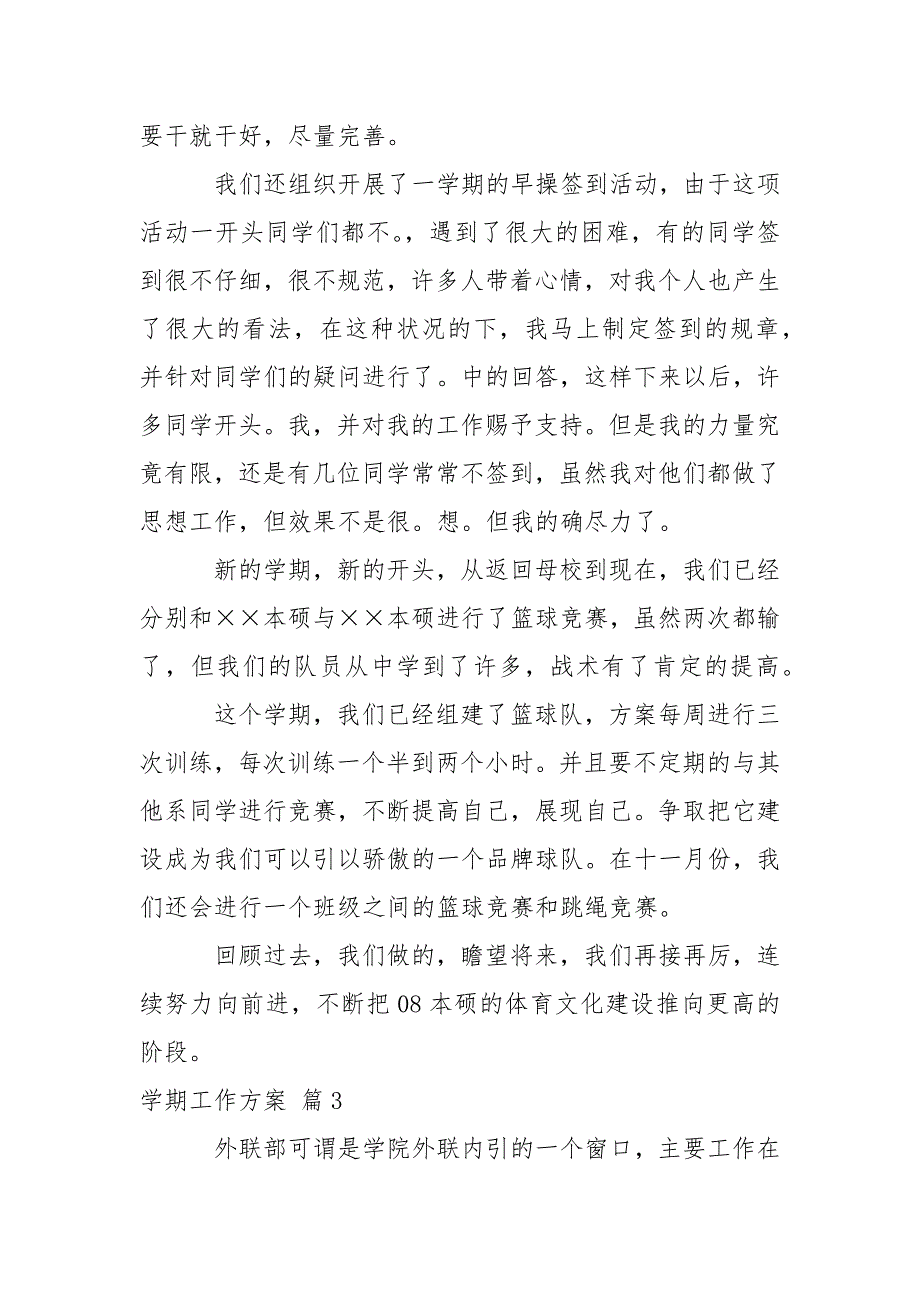 要干就干好，尽量完善。
我们还组织开展了一学期的早操签到活动，由于这项
活动一开头同学们都不。，遇到了很大的困难，有的同学签
到很不仔细，很不规范，许多人带着心情，对我个人也产生
了很大的看法，在这种状况的下，我马上制定签到的规章，
并针对同学们的疑问进行了。中的回答，这样下来以后，许
多同学开头。我，并对我的工作赐予支持。但是我的力量究
竟有限，还是有几位同学常常不签到，虽然我对他们都做了
思想工作，但效果不是很。想。但我的确尽力了。
新的学期，新的开头，从返回母校到现在，我们已经
分别和××本硕与××本硕进行了篮球竞赛，虽然两次都输
了，但我们的队员从中学到了许多，战术有了肯定的提高。
这个学期，我们已经组建了篮球队，方案每周进行三
次训练，每次训练一个半到两个小时。并且要不定期的与其
他系同学进行竞赛，不断提高自己，展现自己。争取把它建
设成为我们可以引以骄傲的一个品牌球队。在十一月份，我
们还会进行一个班级之间的篮球竞赛和跳绳竞赛。
回顾过去，我们做的，瞻望将来，我们再接再厉，连
续努力向前进，不断把08本硕的体育文化建设推向更高的
阶段。
学期工作方案 篇3
外联部可谓是学院外联内引的一个窗口，主要工作在